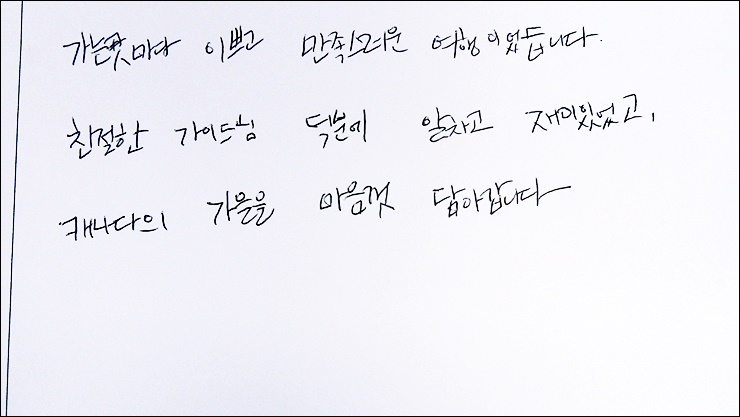 가는곳마다 이쁘고 만족스러운 여행이었습니다.
친절한 가이드님 덕분에 알차고 재미있었고,
캐나다의 가을을 마음껏 담아갑니다